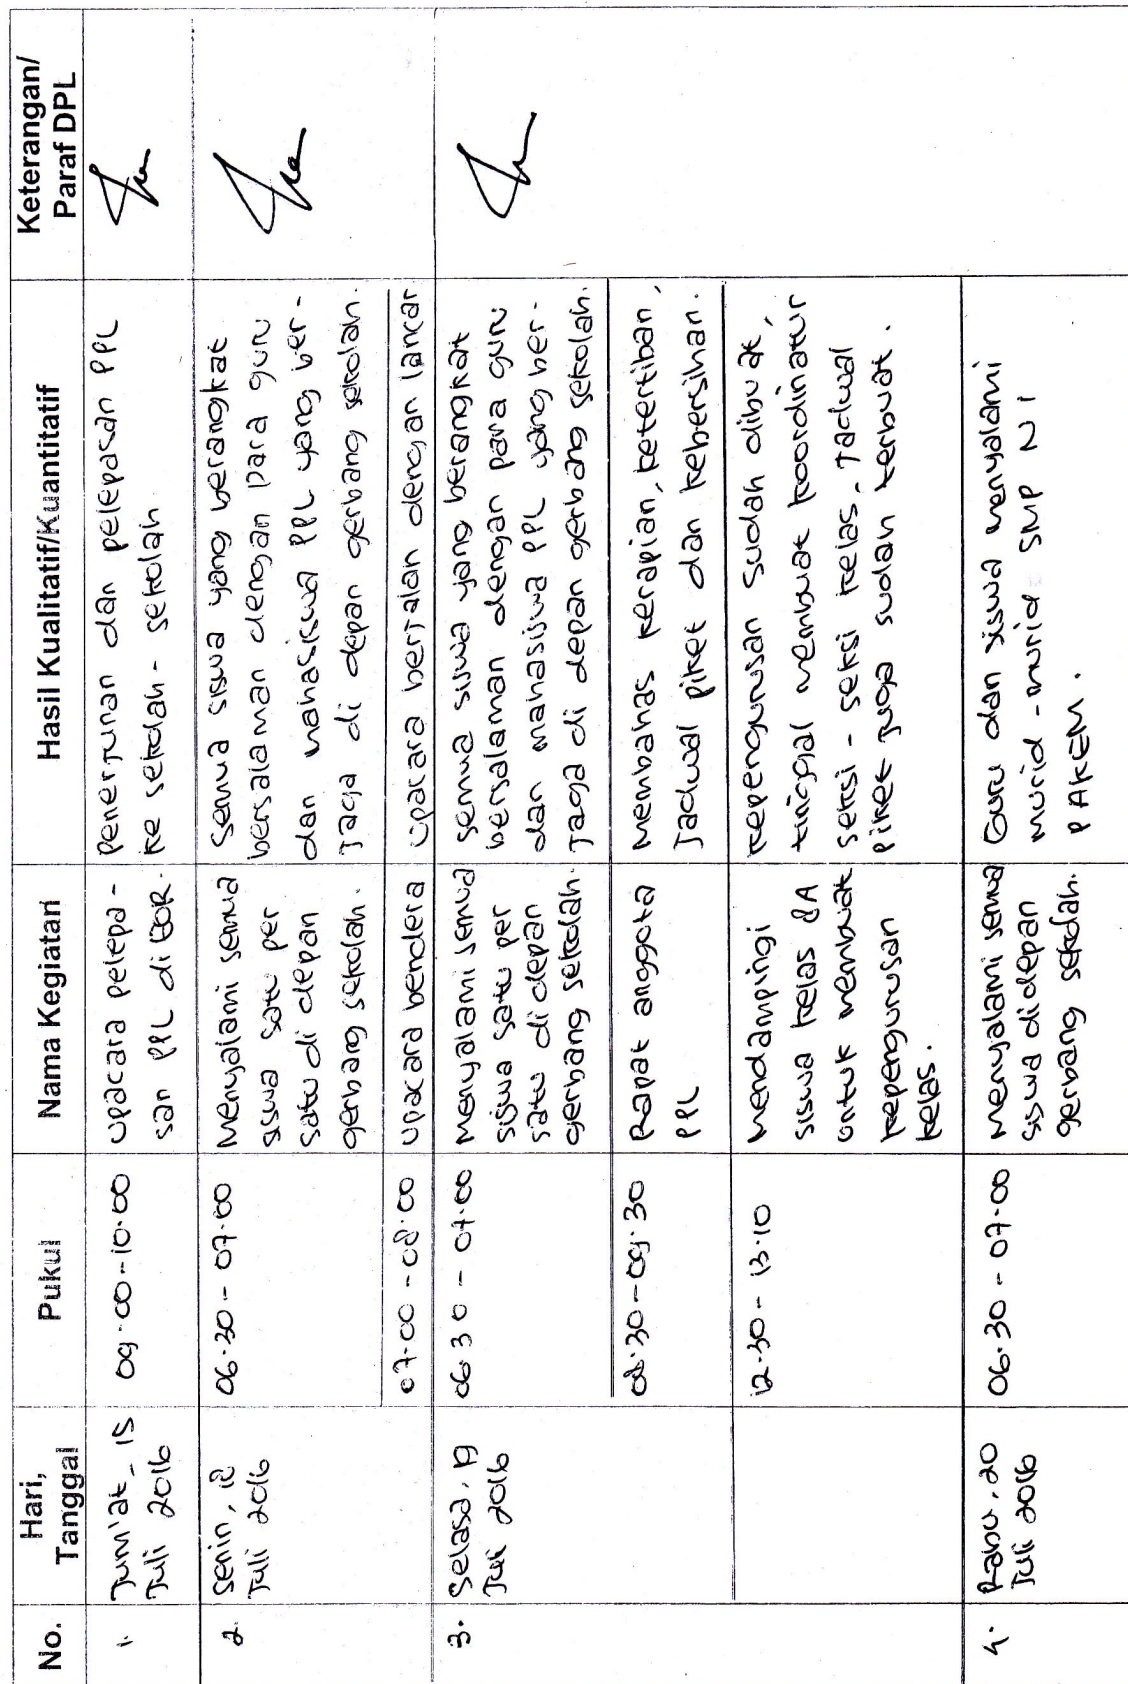 No.
Hari,
Tanggal
Pukul
Nama Kegiatan
Hasil Kualitatif/Kuantitatif
Keterangan/
Paraf DPL
1.
Jum'at, 15
Juli 2016
09.00-10.00
Upacara pelepa-
san PPL di GOR.
Penerjunan dan pelepasan PPL
ke sekolah-sekolah
2.
Senin, 18
Juli 2016
06.30 - 07.00
Menyalami semua
siswa satu per
satu di depan
gerbang sekolah.
Semua siswa yang berangkat
bersalaman dengan para guru
dan mahasiswa PPL yang ber-
jaga di depan gerbang sekolah.
07.00 - 08.00
Upacara bendera
Upacara berjalan dengan lancar
3.
Selasa, 19
Juli 2016
06.30 - 07.00
Menyalami semua
siswa satu per
satu di depan
gerbang sekolah.
Semua siswa yang berangkat
bersalaman dengan para guru
dan mahasiswa PPL yang ber-
jaga di depan gerbang sekolah.
08.30-09.30
Rapat anggota
PPL
Membahas kerapian, ketertiban,
Jadwal piket dan kebersihan.
12.30 - 13.10
Mendampingi
siswa kelas 8A
untuk membuat
kepengurusan
kelas.
Kepengurusan sudah dibuat,
tinggal membuat koordinatur
seksi-seksi kelas. Jadwal
piket juga sudah terbuat.
4.
Rabu, 20
Juli 2016
06.30 - 07.00
Menyalami semua
siswa di depan
gerbang sekolah.
Guru dan siswa menyalami
murid-murid SMP N 1
PAKEM.